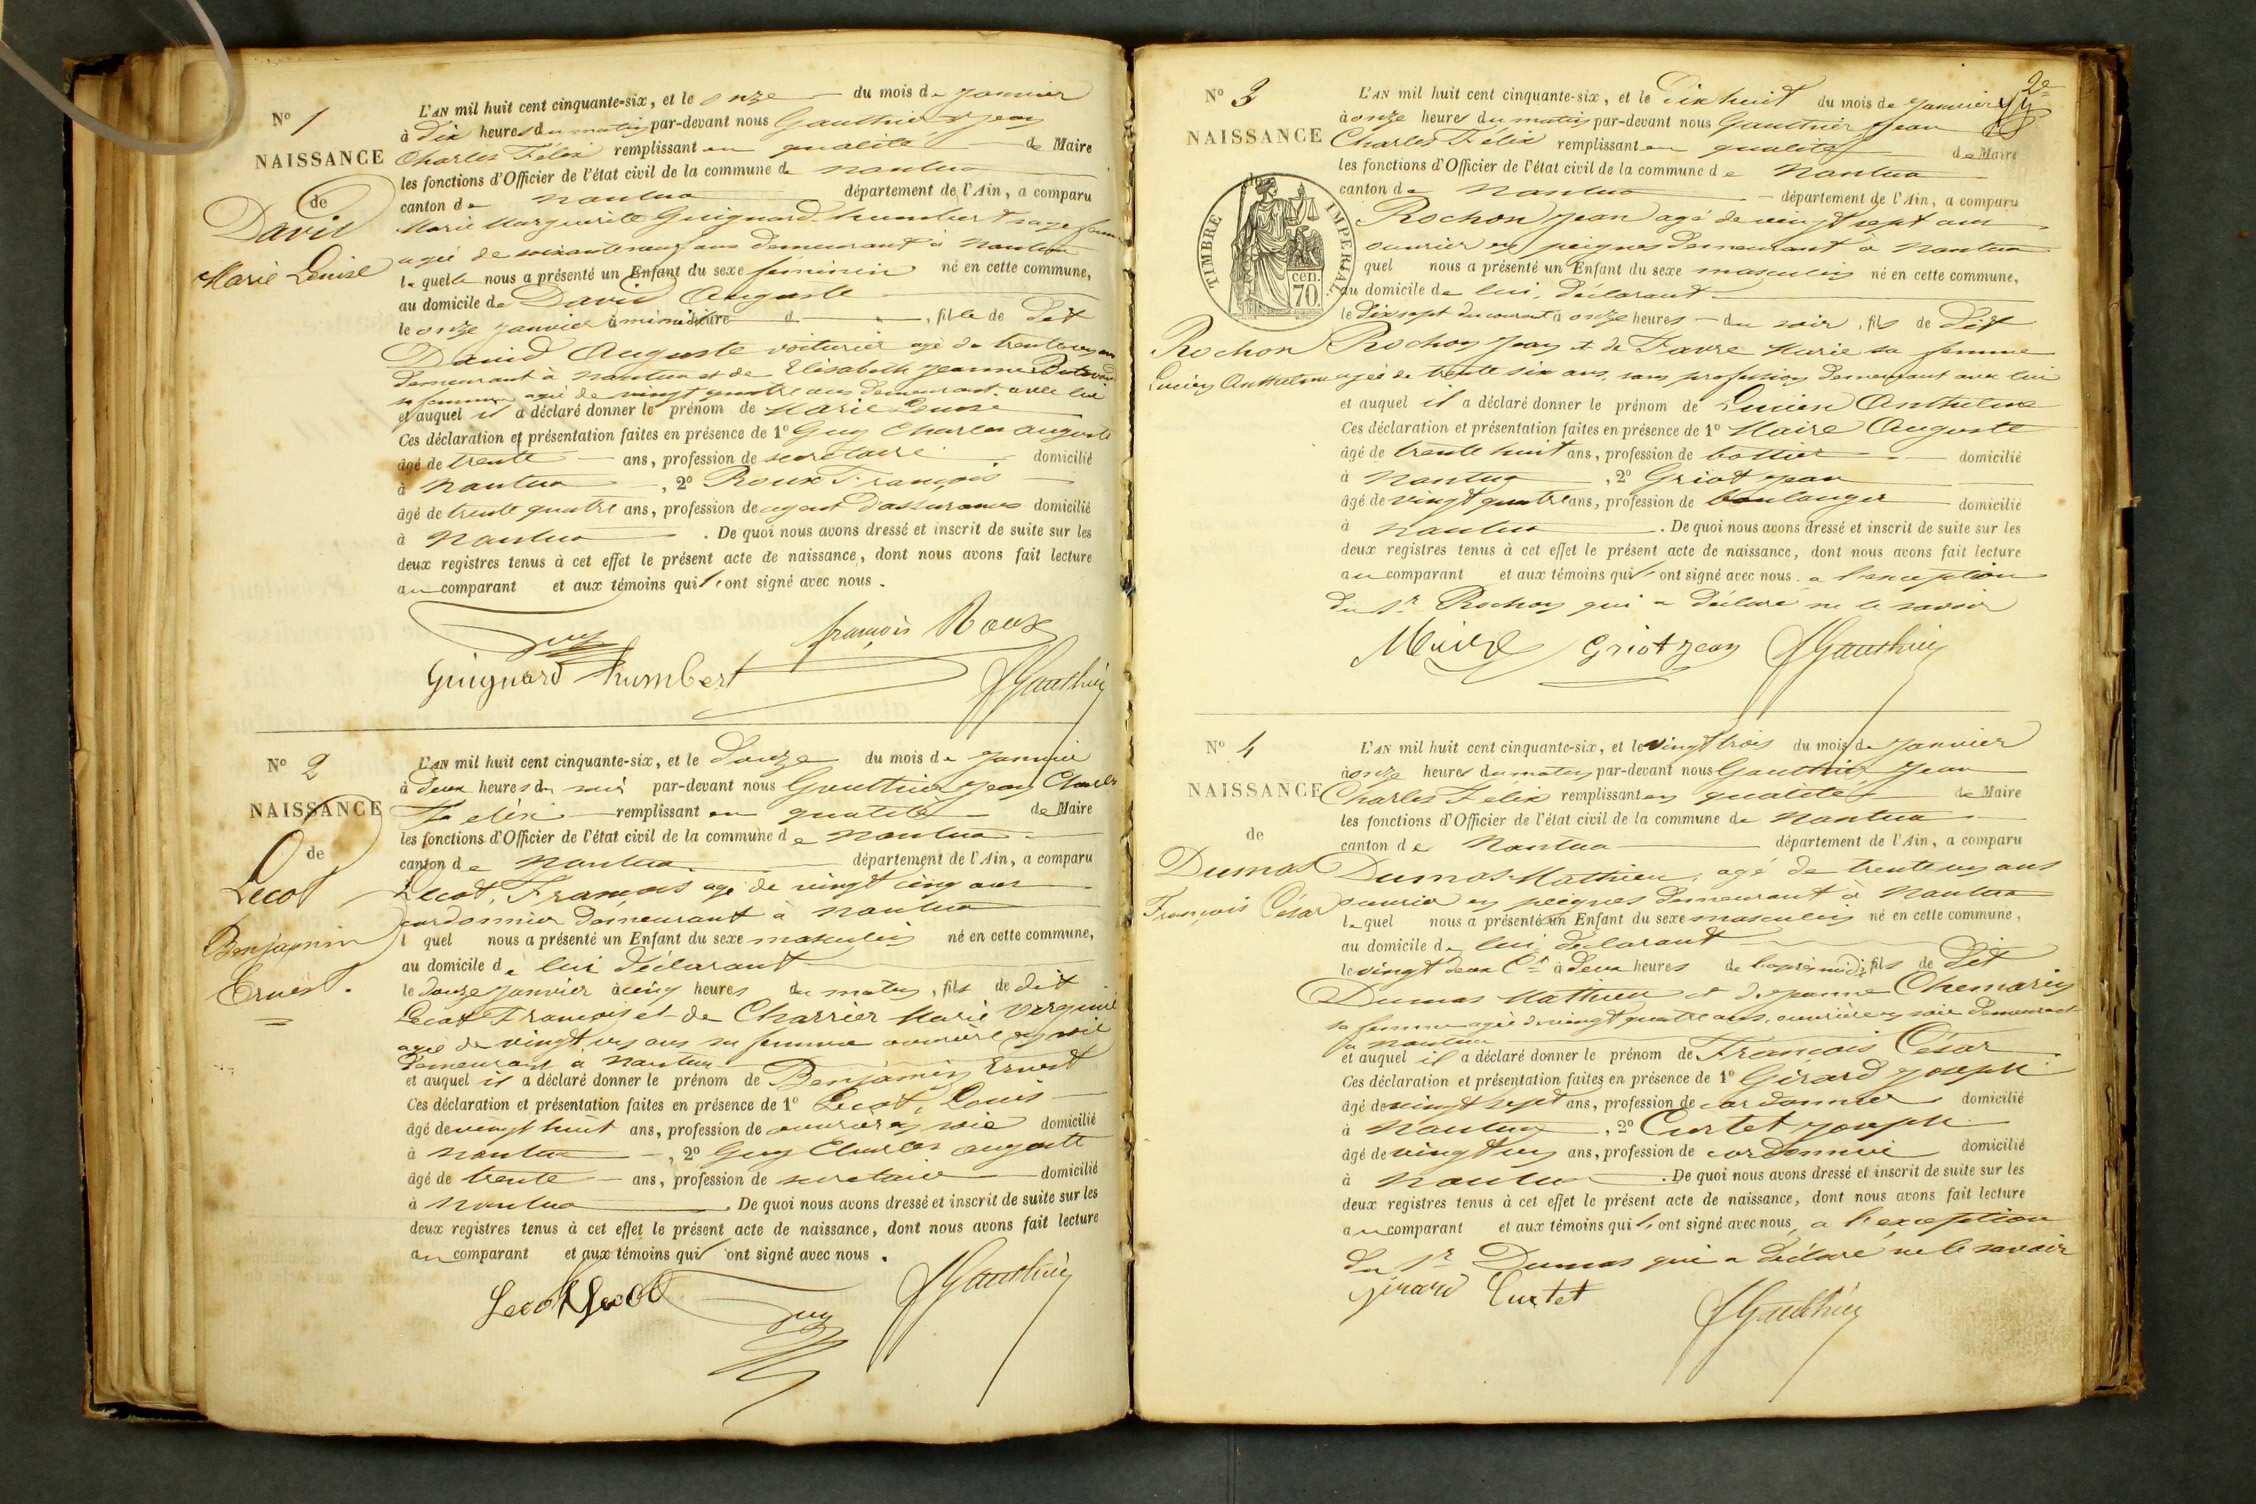 N° 1
NAISSANCE
de
David
Marie Louise
L'AN mil huit cent cinquante-six, et le onze du mois de Janvier
à dix heures du matin par-devant nous Gauthier Jean
Charles Félix remplissant en qualité de Maire
les fonctions d'Officier de l'état civil de la commune de Nantua
canton de Nantua département de l'Ain, a comparu
Marie Marguerite Guignard humbert sage femme
agée de soixante neuf ans demeurant à Nantua
laquelle nous a présenté un Enfant du sexe féminin né en cette commune,
au domicile de David Auguste
le onze janvier à minuit heure d , fille de dit
David Auguste voiturier agé de trente un ans
demeurant à Nantua et de Elisabeth Jeanne
sa femme agée de vingt quatre ans demeurant avec lui
et auquel il a déclaré donner le prénom de Marie Louise
Ces déclaration et présentation faites en présence de 1° Guy Charles auguste
âgé de trente ans, profession de secrétaire domicilié
à Nantua , 2° Roux François
âgé de trente quatre ans, profession de agent d'assurances domicilié
à Nantua . De quoi nous avons dressé et inscrit de suite sur les
deux registres tenus à cet effet le présent acte de naissance, dont nous avons fait lecture
au comparant et aux témoins qui l'ont signé avec nous.
Guy françois Roux
Guignard humbert JGauthier
N° 2
NAISSANCE
de
Lecot
Benjamin
Ernest.
L'AN mil huit cent cinquante-six, et le douze du mois de Janvier
à deux heures du soir par-devant nous Gauthier Jean Charles
Félix remplissant en qualité de Maire
les fonctions d'Officier de l'état civil de la commune de Nantua
canton de Nantua département de l'Ain, a comparu
Lecot, François agé de vingt cinq ans
cordonnier demeurant à Nantua
lequel nous a présenté un Enfant du sexe masculin né en cette commune,
au domicile de lui déclarant
le douze janvier à cinq heures du matin, fils de dit
Lecot François et de Charrier Marie Virginie
agée de vingt un ans sa femme ouvrière en soie
demeurant à Nantua
et auquel il a déclaré donner le prénom de Benjamin Ernest
Ces déclaration et présentation faites en présence de 1° Lecot, Louis
âgé de vingt huit ans, profession de ouvrier en soie domicilié
à Nantua , 2° Guy Charles auguste
âgé de trente ans, profession de secretaire domicilié
à Nantua . De quoi nous avons dressé et inscrit de suite sur les
deux registres tenus à cet effet le présent acte de naissance, dont nous avons fait lecture
au comparant et aux témoins qui l'ont signé avec nous.
Lecot Lecot Guy JGauthier
2e
N° 3
NAISSANCE
de
TIMBRE IMPERIAL
70 cen.
Rochon
Lucien Anthelme
L'AN mil huit cent cinquante-six, et le dix huit du mois de Janvier
à onze heures du matin par-devant nous Gauthier Jean
Charles Félix remplissant en qualité de Maire
les fonctions d'Officier de l'état civil de la commune de Nantua
canton de Nantua département de l'Ain, a comparu
Rochon Jean agé de vingt sept ans
ouvrier en peignes demeurant à Nantua
quel nous a présenté un Enfant du sexe masculin né en cette commune,
au domicile de lui, déclarant
le dix sept du courant à onze heures du soir, fils de dit
Rochon Jean et de Favre Marie sa femme
agée de trente six ans, sans profession demeurant avec lui
et auquel il a déclaré donner le prénom de Lucien Anthelme
Ces déclaration et présentation faites en présence de 1° Maire Auguste
âgé de trente huit ans, profession de bottier domicilié
à Nantua , 2° Griot Jean
âgé de vingt quatre ans, profession de boulanger domicilié
à Nantua . De quoi nous avons dressé et inscrit de suite sur les
deux registres tenus à cet effet le présent acte de naissance, dont nous avons fait lecture
au comparant et aux témoins qui l'ont signé avec nous a l'exception
du Sr Rochon qui a déclaré ne le savoir
Maire Griot Jean JGauthier
N° 4
NAISSANCE
de
Dumas
François César
L'AN mil huit cent cinquante-six, et le vingt trois du mois de Janvier
à onze heures du matin par-devant nous Gauthier Jean
Charles Félix remplissant en qualité de Maire
les fonctions d'Officier de l'état civil de la commune de Nantua
canton de Nantua département de l'Ain, a comparu
Dumas Mathieu, agé de trente un ans
ouvrier en peignes demeurant à Nantua
lequel nous a présenté un Enfant du sexe masculin né en cette commune,
au domicile de lui déclarant
le vingt deux Ct à deux heures de l'après midi, fils de dit
Dumas Mathieu et de Jeanne Chemarin
sa femme agée de vingt quatre ans, ouvrière en soie demeurant
à Nantua
et auquel il a déclaré donner le prénom de François César
Ces déclaration et présentation faites en présence de 1° Girard Joseph
âgé de vingt sept ans, profession de cordonnier domicilié
à Nantua , 2° Curtet Joseph
âgé de vingt un ans, profession de cordonnier domicilié
à Nantua . De quoi nous avons dressé et inscrit de suite sur les
deux registres tenus à cet effet le présent acte de naissance, dont nous avons fait lecture
au comparant et aux témoins qui l'ont signé avec nous, a l'exception
du Sr Dumas qui a déclaré ne le savoir
Girard Curtet JGauthier